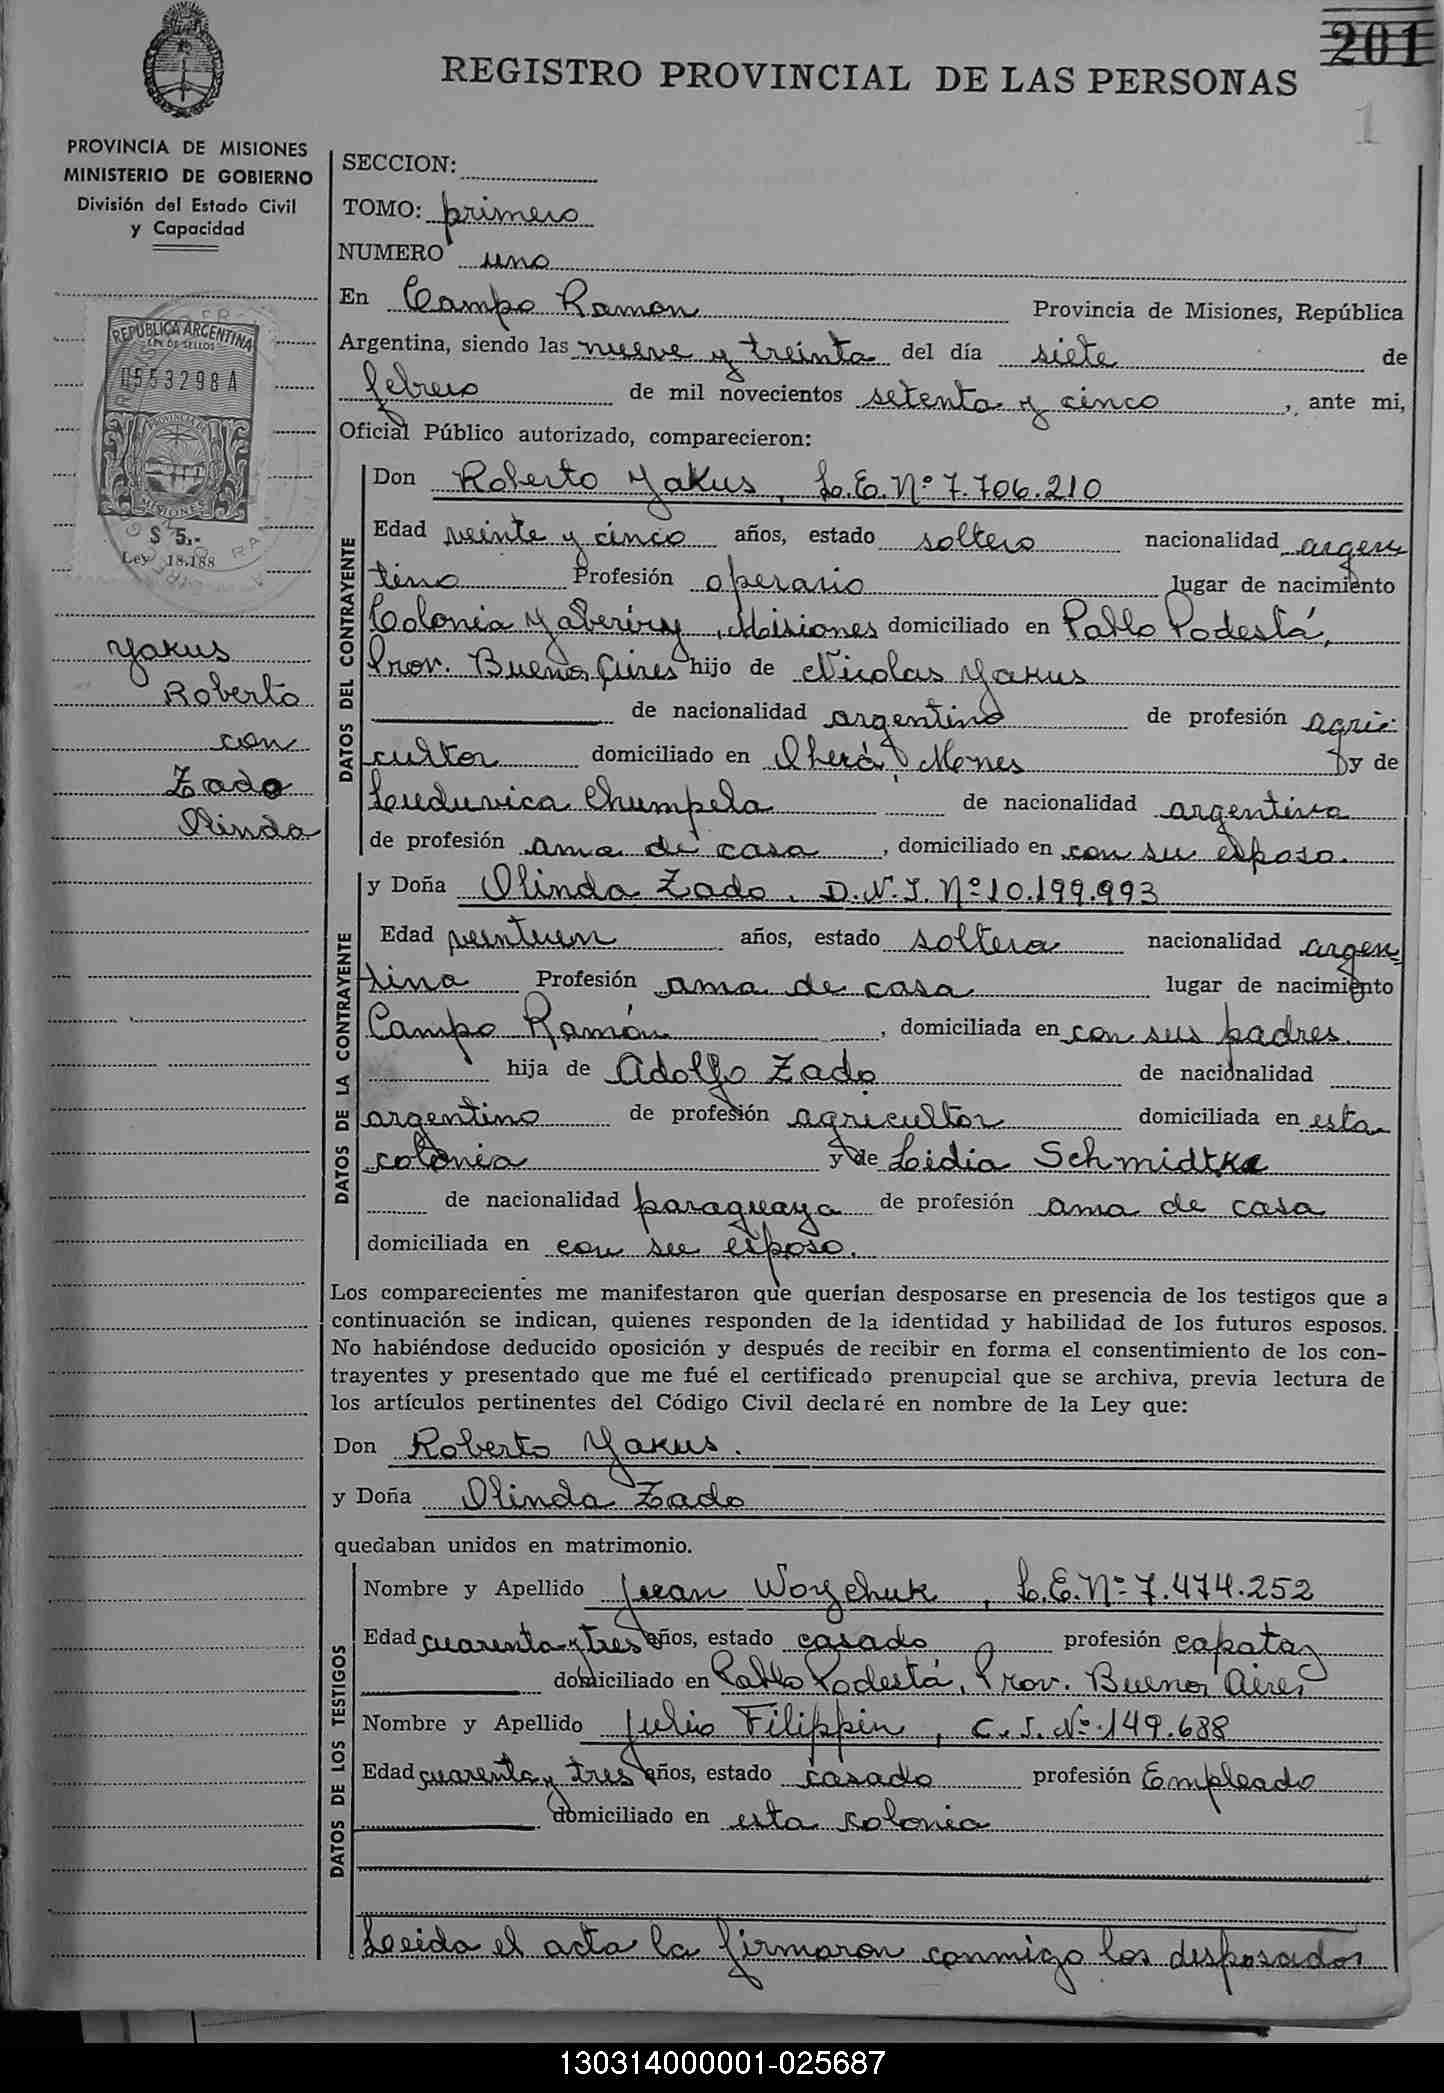 201
REGISTRO PROVINCIAL DE LAS PERSONAS
1
PROVINCIA DE MISIONES
MINISTERIO DE GOBIERNO
División del Estado Civil
y Capacidad
REPUBLICA ARGENTINA
LEY DE SELLOS
0553298A
PROVINCIA DE
MISIONES
$ 5.-
Ley 18.188
Yakus
Roberto
con
Zado
Olinda
SECCION:
TOMO: primero
NUMERO uno
En Campo Ramon Provincia de Misiones, República
Argentina, siendo las nueve y treinta del día siete de
febrero de mil novecientos setenta y cinco, ante mi,
Oficial Público autorizado, comparecieron:
DATOS DEL CONTRAYENTE
Don Roberto Yakus, L.E. Nº 7.706.210
Edad veinte y cinco años, estado soltero nacionalidad argen
tino Profesión operario lugar de nacimiento
Colonia Yaberiry, Misiones domiciliado en Pablo Podestá,
Prov. Buenos Aires hijo de Nicolas Yakus
de nacionalidad argentino de profesión agri-
cultor domiciliado en Oberá, Mones y de
Luduvica Chumpela de nacionalidad argentina
de profesión ama de casa, domiciliado en con su esposo.
DATOS DE LA CONTRAYENTE
y Doña Olinda Zado, D.N.I. Nº 10.199.993
Edad veintiun años, estado soltera nacionalidad argen-
tina Profesión ama de casa lugar de nacimiento
Campo Ramón, domiciliada en con sus padres
hija de Adolfo Zado de nacionalidad
argentino de profesión agricultor domiciliada en esta
colonia y de Lidia Schmidtke
de nacionalidad paraguaya de profesión ama de casa
domiciliada en con su esposo.
Los comparecientes me manifestaron que querian desposarse en presencia de los testigos que a
continuación se indican, quienes responden de la identidad y habilidad de los futuros esposos.
No habiéndose deducido oposición y después de recibir en forma el consentimiento de los con-
trayentes y presentado que me fué el certificado prenupcial que se archiva, previa lectura de
los artículos pertinentes del Código Civil declaré en nombre de la Ley que:
Don Roberto Yakus.
y Doña Olinda Zado
quedaban unidos en matrimonio.
DATOS DE LOS TESTIGOS
Nombre y Apellido Juan Woychuk, L.E. Nº 7.474.252
Edad cuarenta y tres años, estado casado profesión capataz
domiciliado en Pablo Podestá, Prov. Buenos Aires
Nombre y Apellido Julio Filippin, C.I. Nº 149.688
Edad cuarenta y tres años, estado casado profesión Empleado
domiciliado en esta colonia
Leida el acta la firmaron conmigo los desposados
130314000001-025687